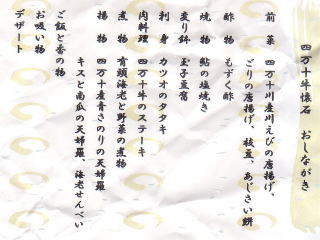 四万十牛懐石　おしながき
前菜　四万十川産川えびの唐揚げ、
ごりの唐揚げ、枝豆、あじさい餅
酢物　もずく酢
焼物　鮎の塩焼き
変り鉢　玉子豆富
刺身　カツオのタタキ
肉料理　四万十牛のステーキ
煮物　有頭海老と野菜の煮物
揚物　四万十産青さのりの天婦羅
キスと南瓜の天婦羅、海老せんべい
ご飯と香の物
お吸い物
デザート